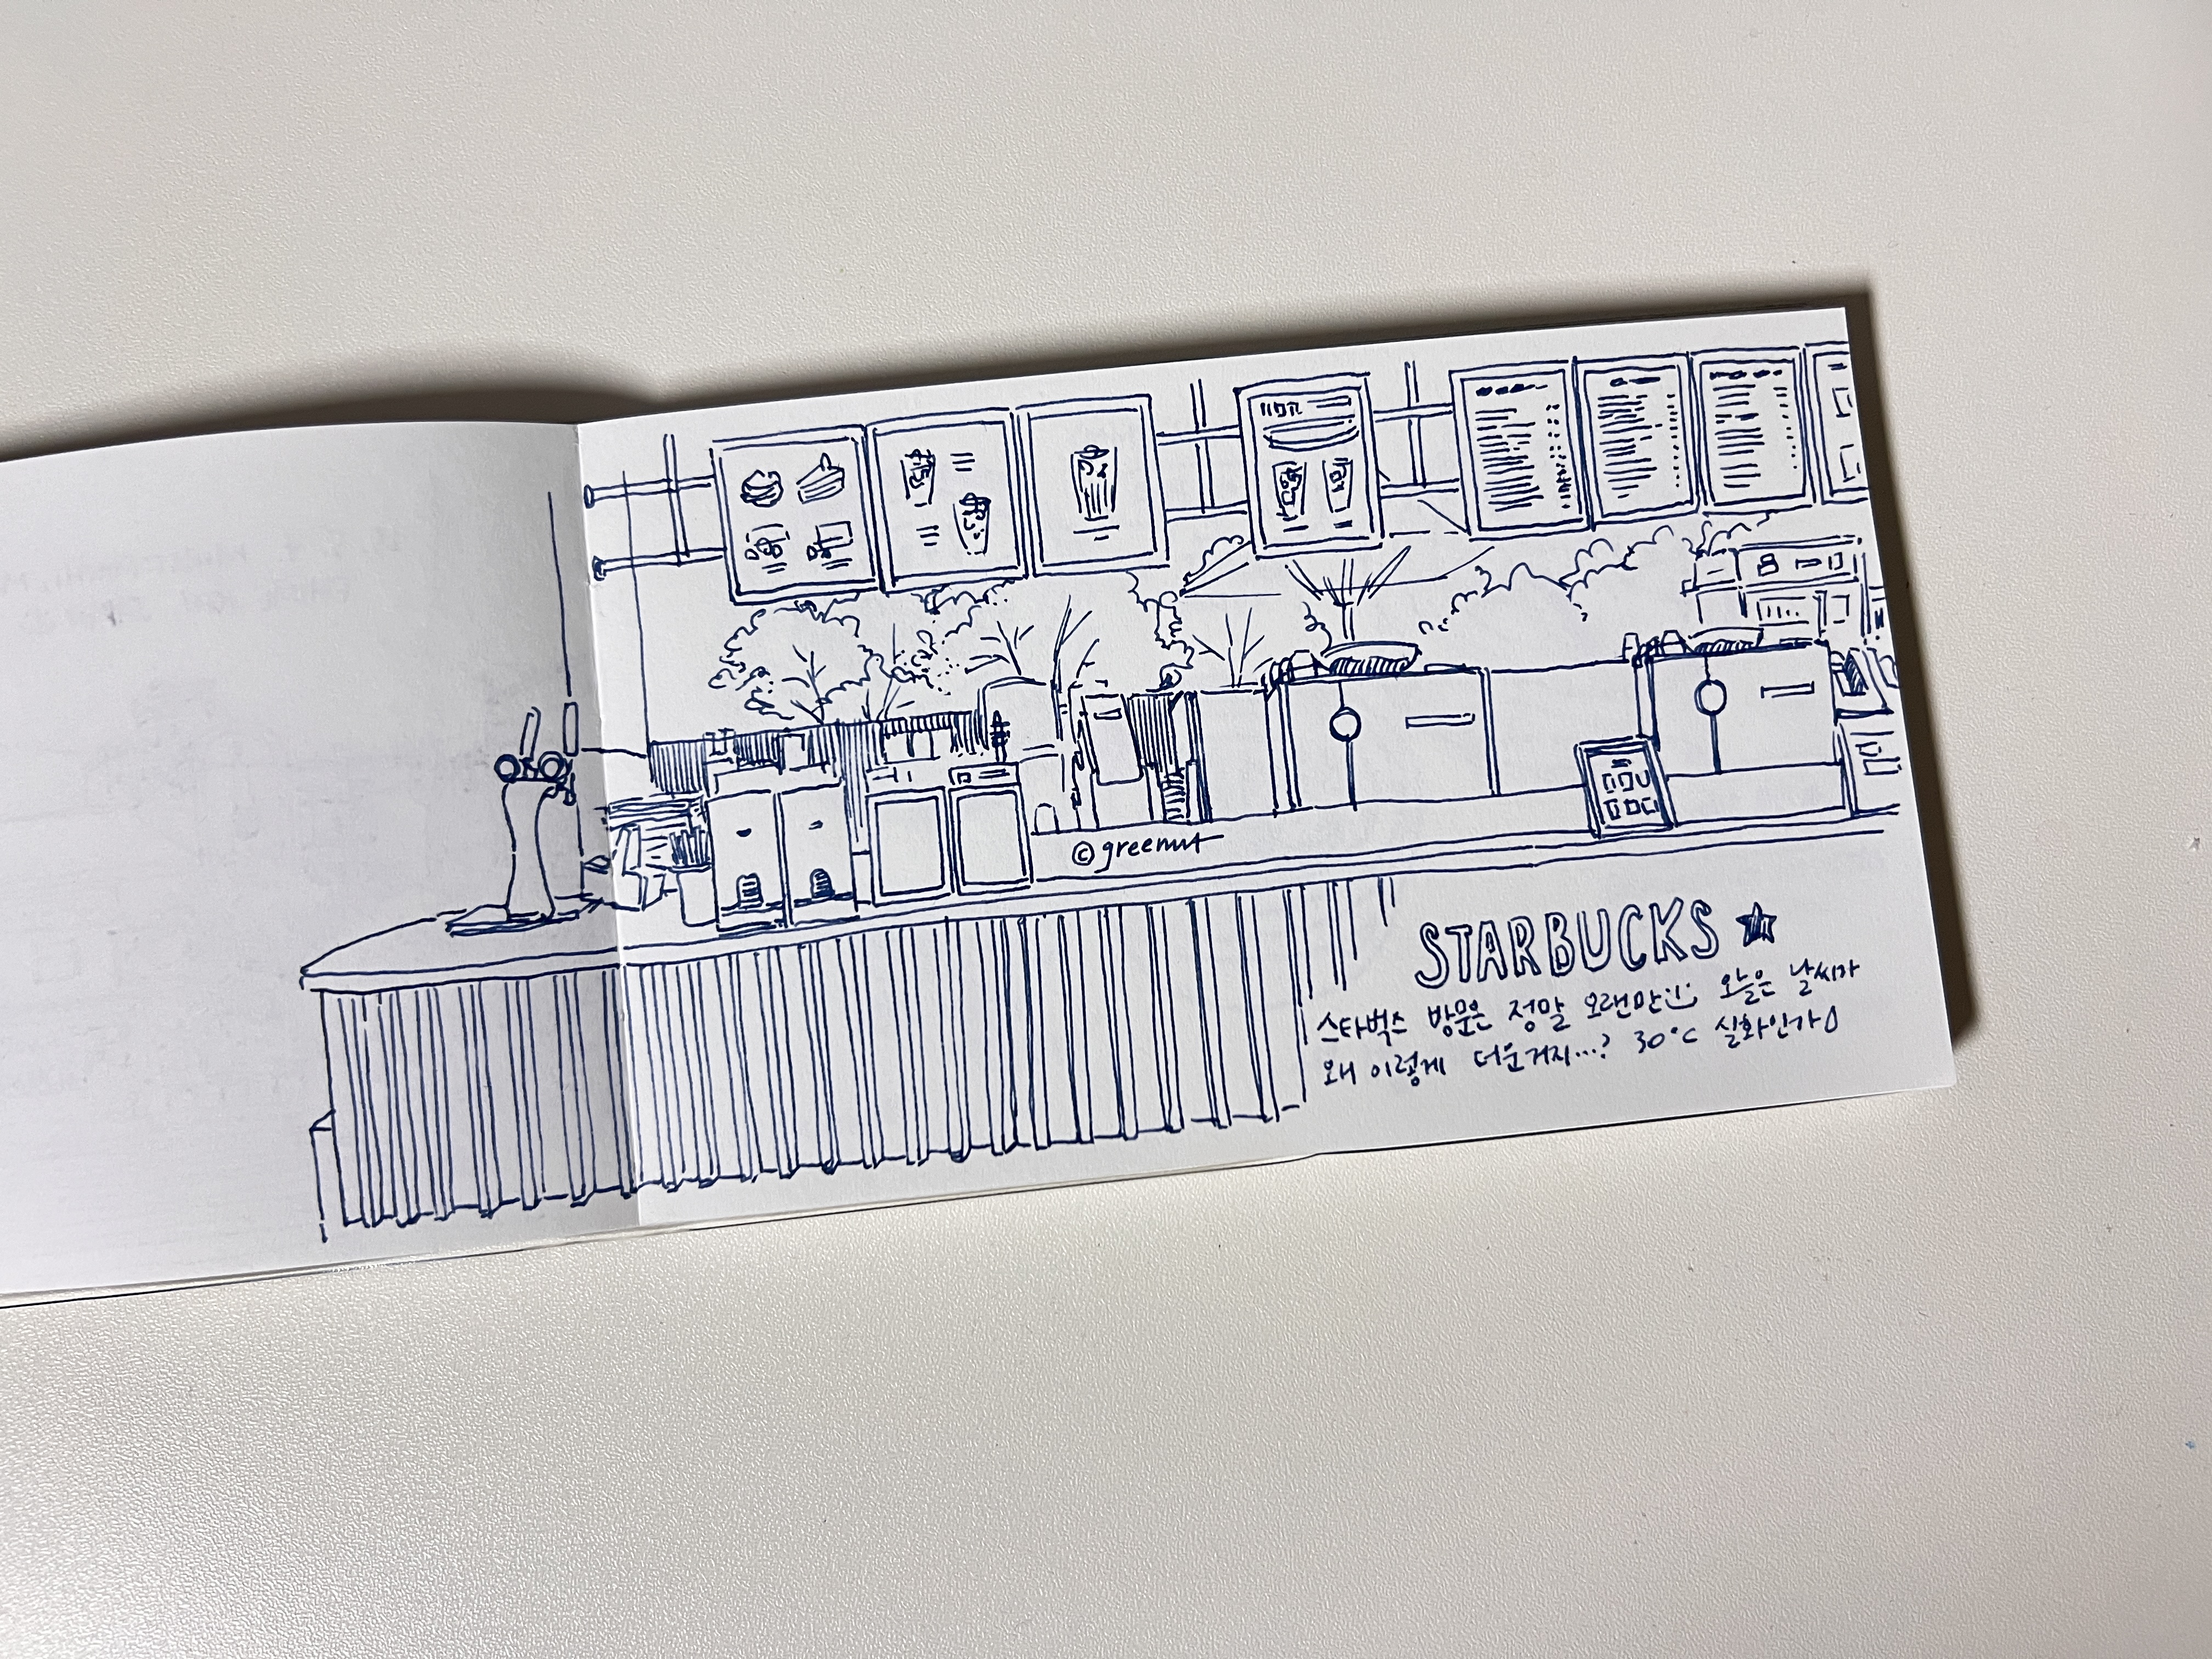 © greenut
STARBUCKS ★
스타벅스 방문은 정말 오랜만 :) 오늘은 날씨가
왜 이렇게 더운거지...? 30°C 실화인가